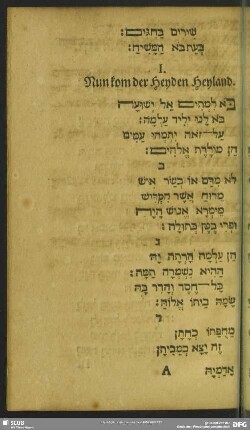 שירים בחגים:
בעת בא המשיח:
I.
Nun kom der Heyden Heyland.
בא למהים אל ישועה
בא לנו יליד עלמה:
על־זאת יתמהו עמים
הן מולדת אלהים:
ב
לא מדם או בשר איש
מרוח אשר הקדיש
מימרא אנוש היה
ופרי בטן בתולה:
ג
הן עלמה הרתה יה
ההיא נשמרה תמה:
כל־חסד והדר בה
שמה ביתו אלוה:
ד
מחפתו כחתן
זה יצא כמביתן
A
אדמיה
SLUB
DFG